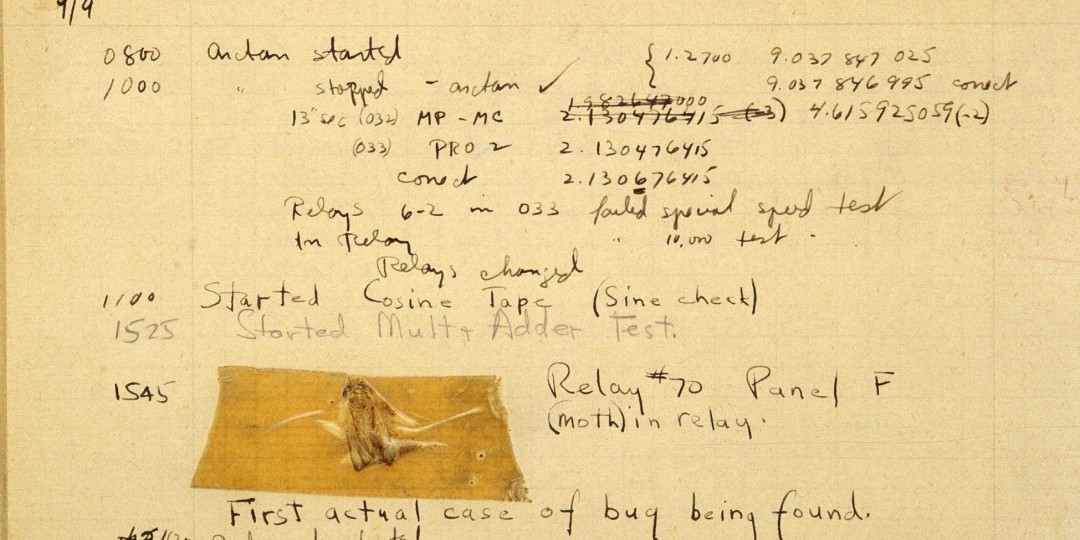 9/9
0800 arctan started { 1.2700 9.037 847 025
1000 " stopped - arctan ✓ 9.037 846 995 correct
13"sec (032) MP - MC 1.982647000 2.130476415 (-3) 4.615925059(-2)
(033) PRO 2 2.130476415
correct 2.130676415
Relays 6-2 in 033 failed special speed test
In Relay " 10,000 test .
Relays changed
1100 Started Cosine Tape (Sine check)
1525 Started Mult+ Adder Test.
1545 Relay #70 Panel F
(moth) in relay.
First actual case of bug being found.